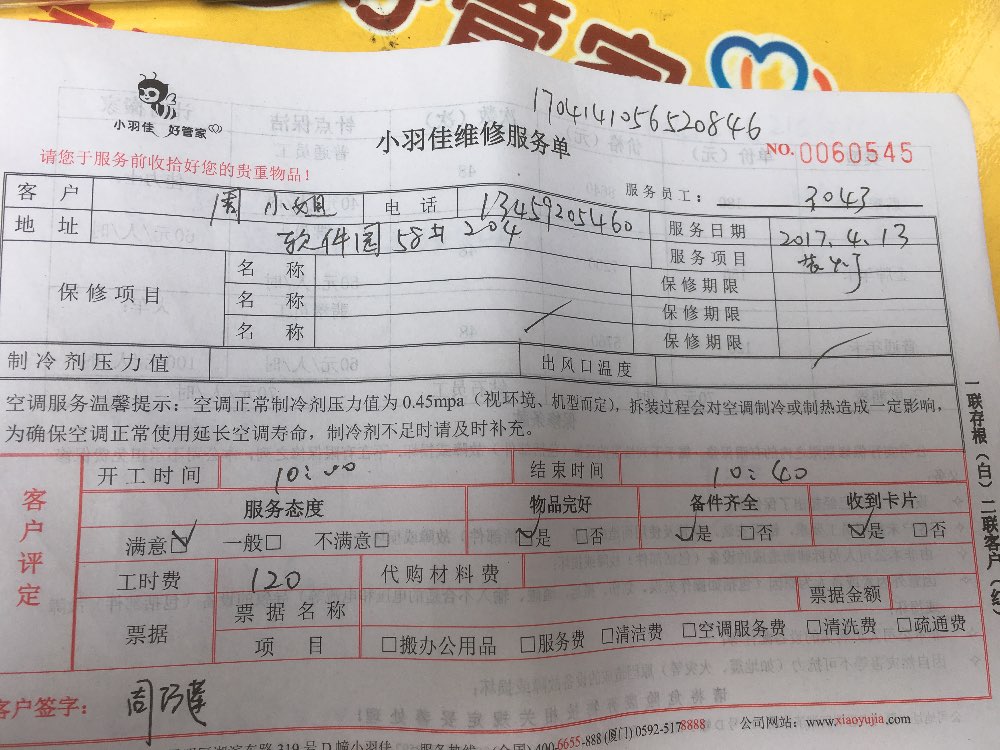 管家
1704141056520846
小羽佳 好管家
小羽佳维修服务单
NO. 0060545
请您于服务前收拾好您的贵重物品！
服务员工： 3043
客户 周小姐 电话 13459205460 服务日期 2017.4.13
地址 软件园58#204 服务项目
保修项目 名称 保修期限
名称 保修期限
名称 保修期限
制冷剂压力值 出风口温度
空调服务温馨提示：空调正常制冷剂压力值为0.45mpa（视环境、机型而定），拆装过程会对空调制冷或制热造成一定影响，
为确保空调正常使用延长空调寿命，制冷剂不足时请及时补充。
客户评定
开工时间 10:00 结束时间 10:40
服务态度 物品完好 备件齐全 收到卡片
满意☑ 一般□ 不满意□ ☑是 □否 ☑是 □否 ☑是 □否
工时费 120 代购材料费
票据 票据名称 票据金额
项目 □搬办公用品 □服务费 □清洁费 □空调服务费 □清洗费 □疏通费
一联存根（白）二联客户（红）
客户签字：
319号D幢小羽佳 服务热线（全国）400-6655-888（厦门）0592-5178888 公司网站：www.xiaoyujia.com